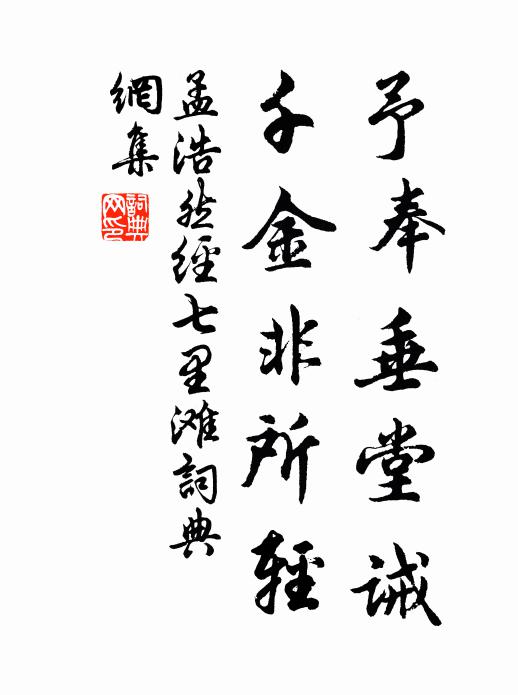 予奉垂堂誡
千金非所輕
孟浩然經七里滩詞典
網集
詞典
网印